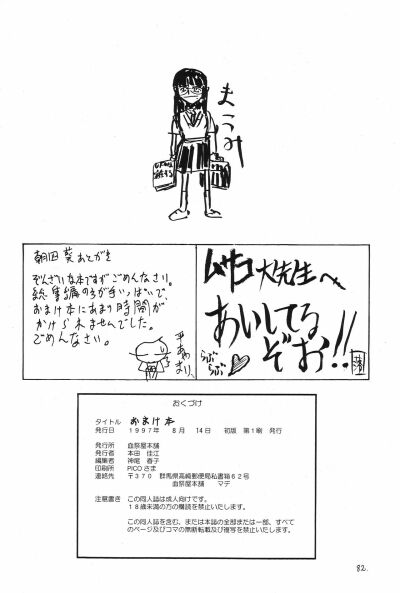 まこみ
朝田 葵 あとがき
ぞんざいな本ですがごめんなさい。
総集編の方が手いっぱいで、
おまけ本にあまり時間が
かけられませんでした。
ごめんなさい。
平あやまり
ムサコ大先生へ
あいしてる
ぞお!!
らぶらぶ♡
おくづけ
タイトル おまけ本
発行日 1997年 8月 14日 初版 第1刷 発行
発行所 血祭屋本舗
発行者 本田 佳江
編集者 神尾 春子
印刷所 PICOさま
連絡先 〒370 群馬県高崎郵便局私書箱62号
血祭屋本舗 マデ
注意書き この同人誌は成人向けです。
18歳未満の方の購読を禁止いたします。
この同人誌を含む、または本誌の全部または一部、すべて
のページ及びコマの無断転載及び複写を禁止いたします。
82.